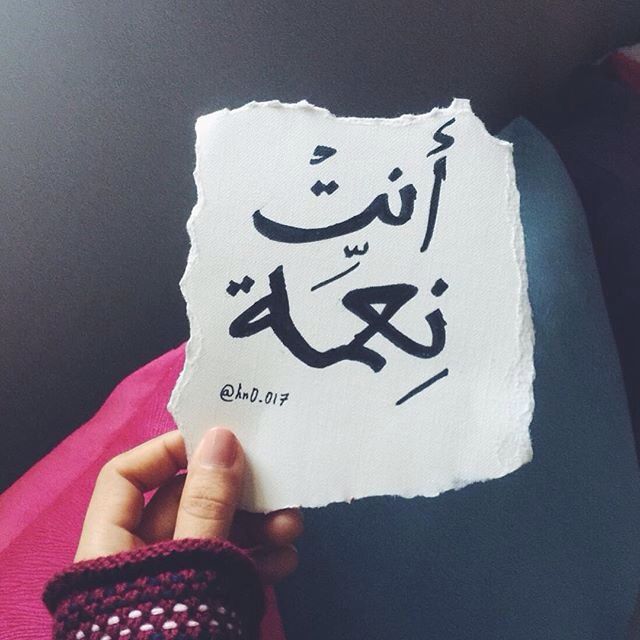 أنتْ
نِعِمَّة
@hn0.017